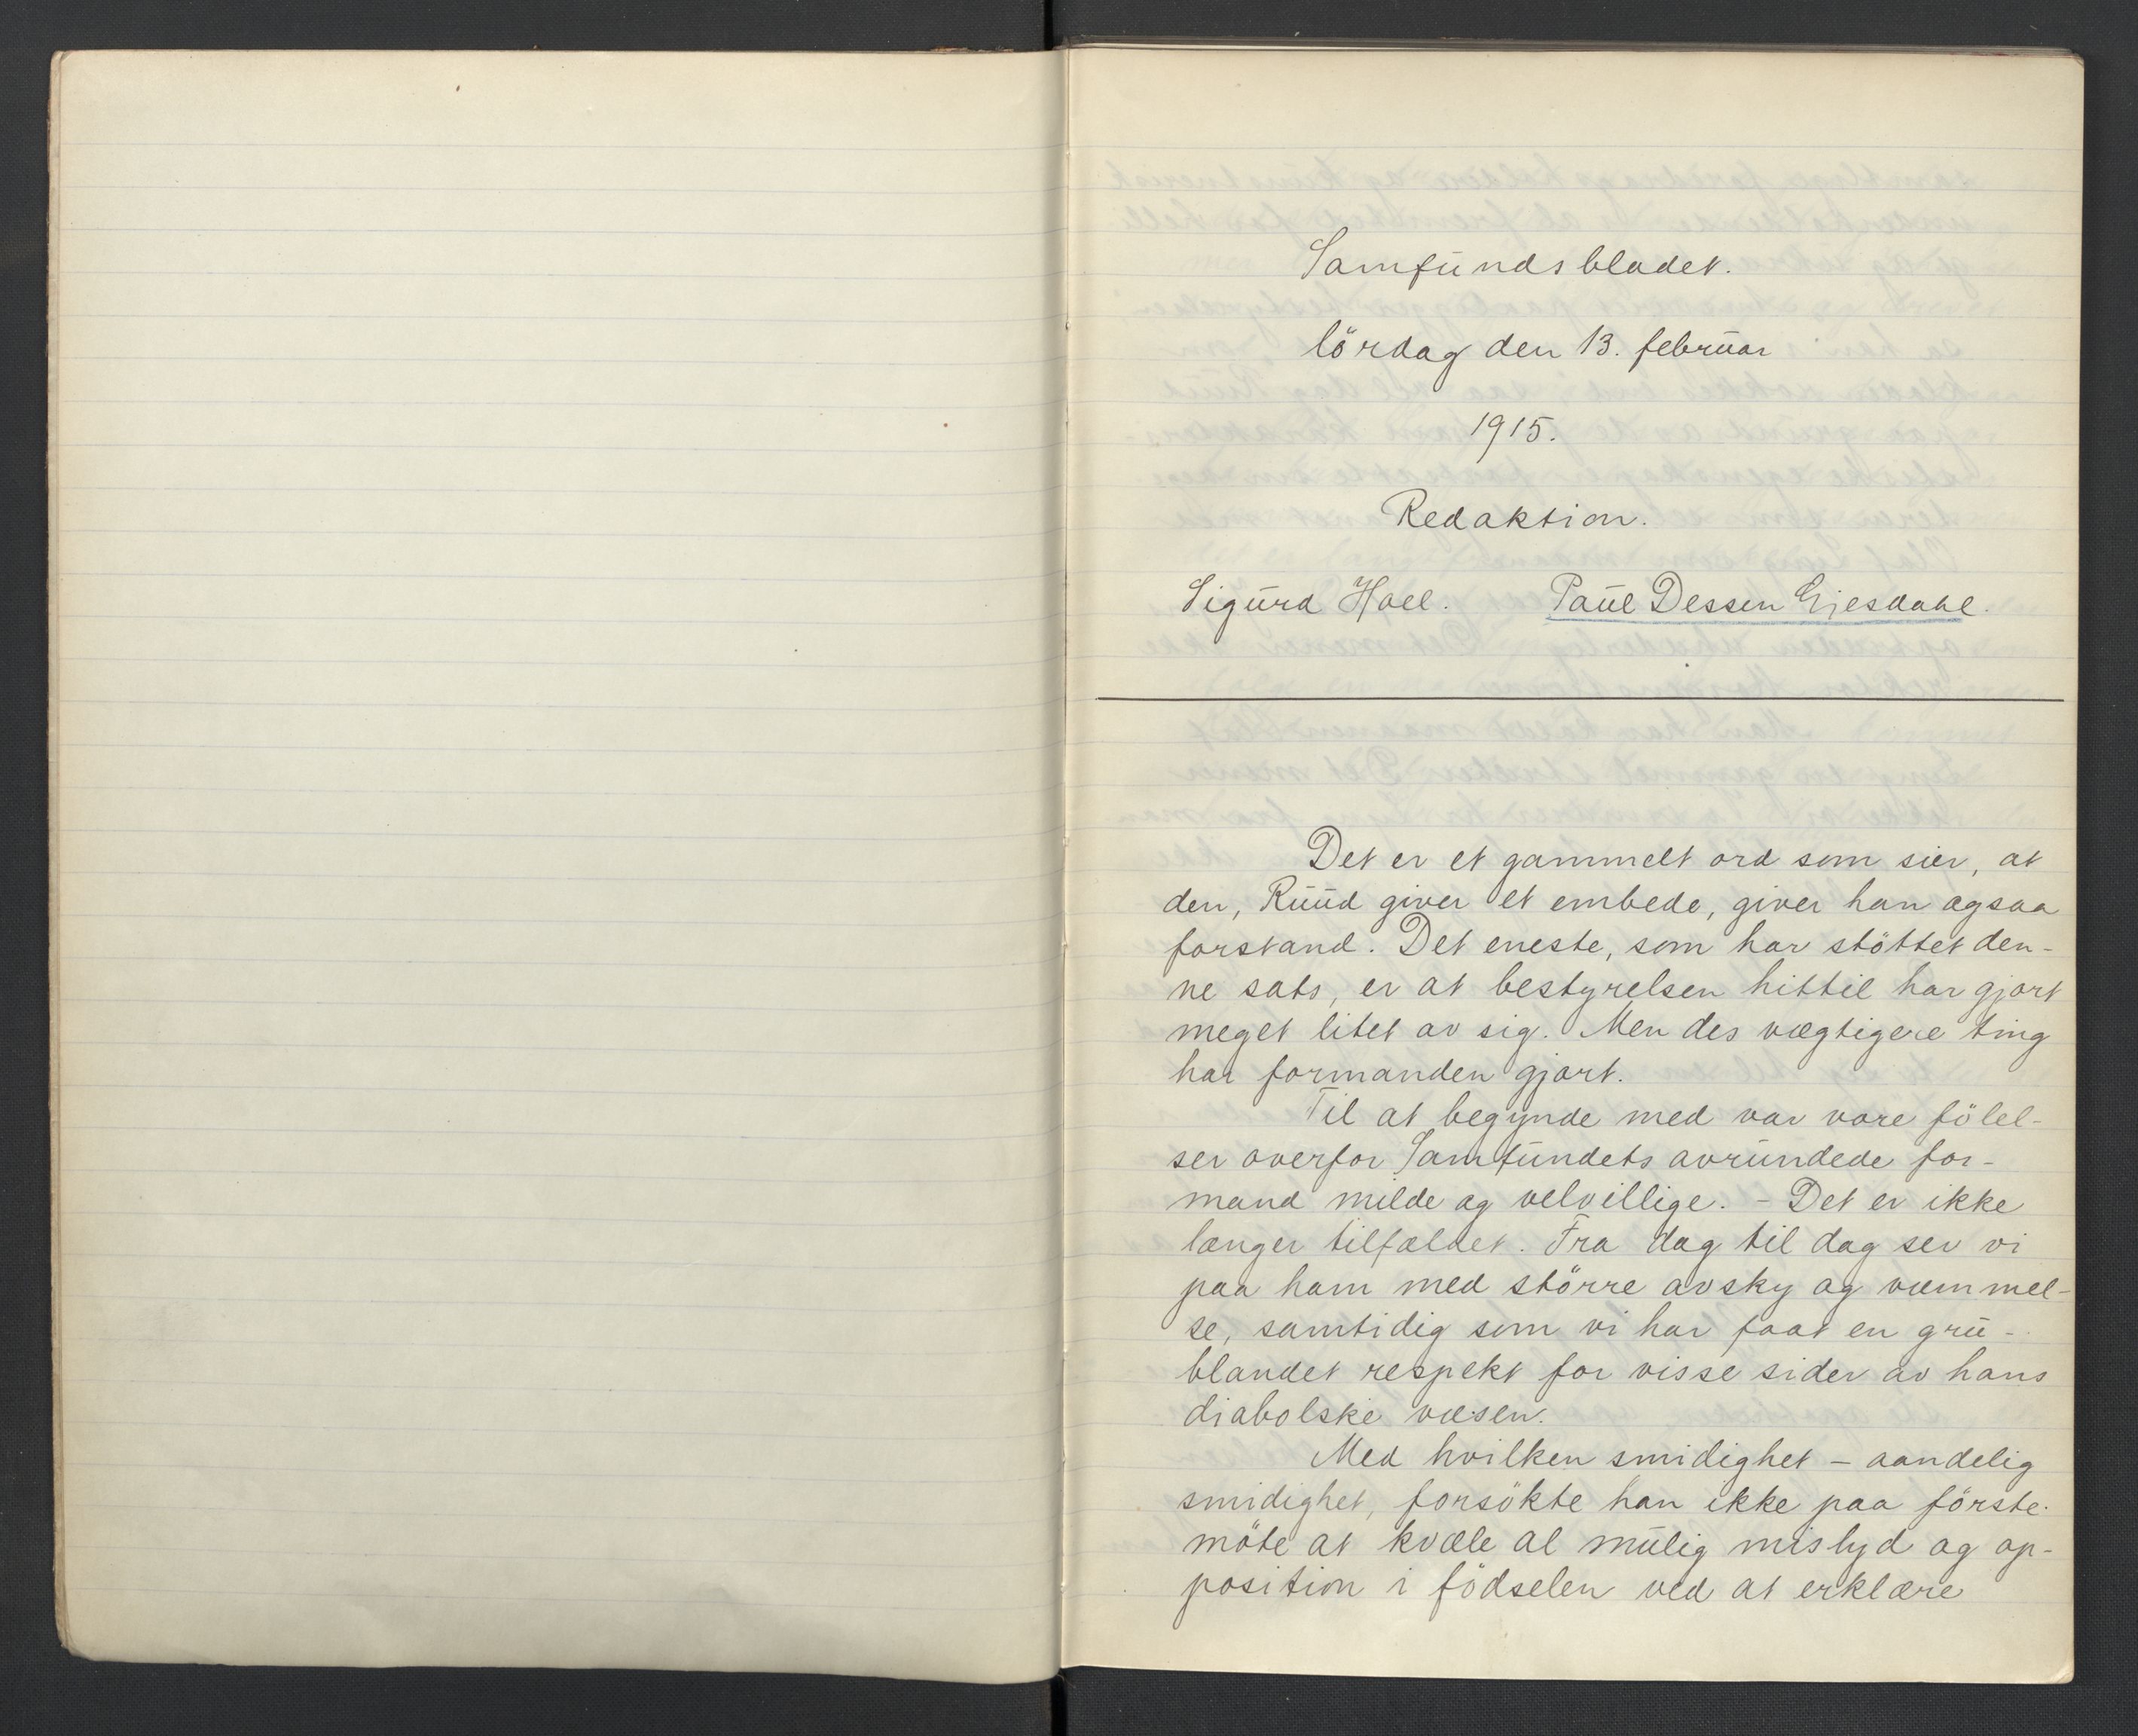 Samfundsbladet.
lördag den 13. februar
1915.
Redaktion.
Sigurd Hoel. Paul Dessen Gjesdahl.
Det er et gammelt ord som sier, at
den, Ruud giver et embede, giver han ogsaa
forstand. Det eneste, som har stöttet den-
ne sats, er at bestyrelsen hittil har gjort
meget litet av sig. Men des vægtigere ting
har formanden gjort.
Til at begynde med var vore fölel-
ser overfor Samfundets avrundede for-
mand milde og velvillige. - Det er ikke
længer tilfældet. Fra dag til dag ser vi
paa ham med större avsky og væmmel-
se, samtidig som vi har faat en gru-
blandet respekt for visse sider av hans
diabolske væsen.
Med hvilken smidighet - aandelig
smidighet, forsökte han ikke paa förste
möte at kvæle al mulig mislyd og op-
position i födselen ved at erklære